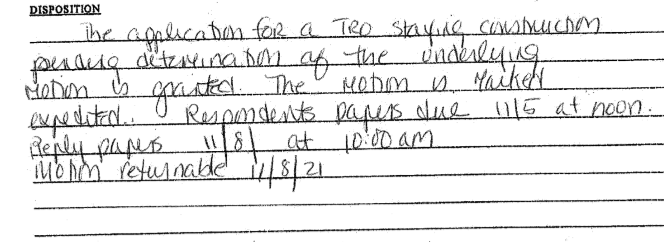 DISPOSITION
The application for a TRO staying construction
pending determination of the underlying
Motion is granted. The Motion is Marked
expedited. Respondents papers due 11/5 at noon.
Reply papers 11/8/ at 10:00 am
Motion returnable 11/8/21